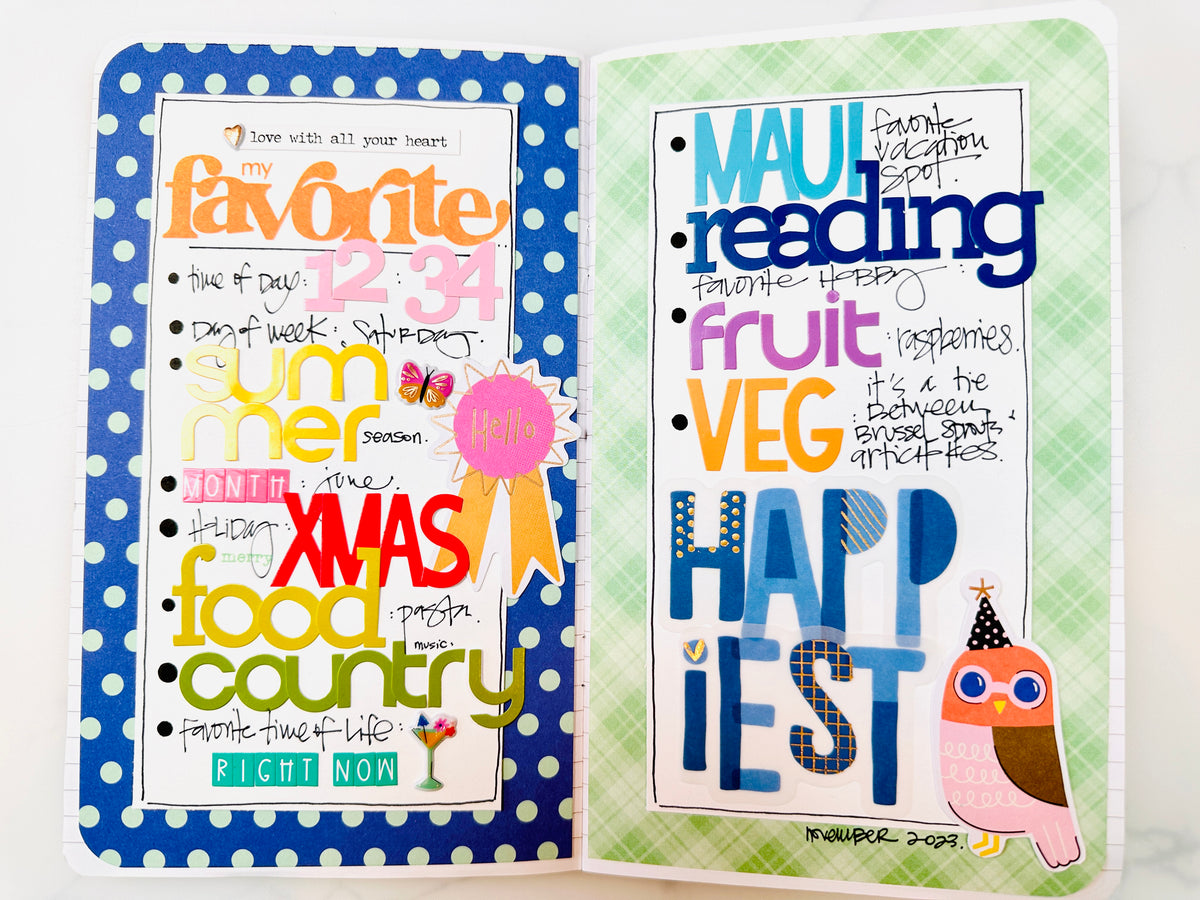 love with all your heart
my
favorite
time of Day: 12:34
Day of week: Saturday.
sum
mer season.
MONTH: june.
Holiday:
merry XMAS
food: pasta.
music.
country
favorite time of Life:
RIGHT NOW
Hello
MAUI favorite
vacation
spot.
reading
favorite Hobby:
fruit: raspberries.
VEG: it's a tie
Between
Brussel sprouts +
artichokes.
HAPP
iEST
november 2023.